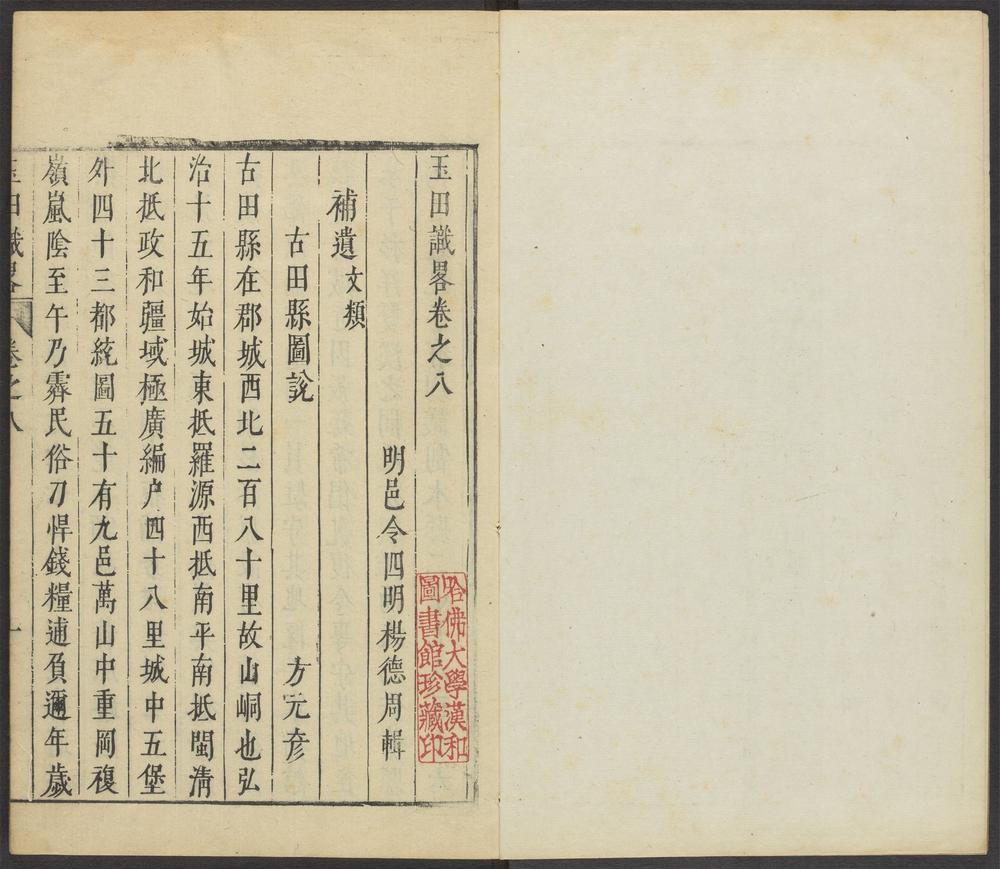 玉田識畧卷之八
明邑令四明楊德周輯
補遺 文類
古田縣圖說 方元彥
古田縣在郡城西北二百八十里故山峒也弘
治十五年始城東抵羅源西抵南平南抵閩清
北抵政和疆域極廣編户四十八里城中五堡
外四十三都統圖五十有九邑萬山中重岡複
嶺嵐陰至午乃霽民俗刀悍錢糧逋負邇年歲
玉田識畧 卷之八 一
哈佛大學漢和
圖書館珍藏印